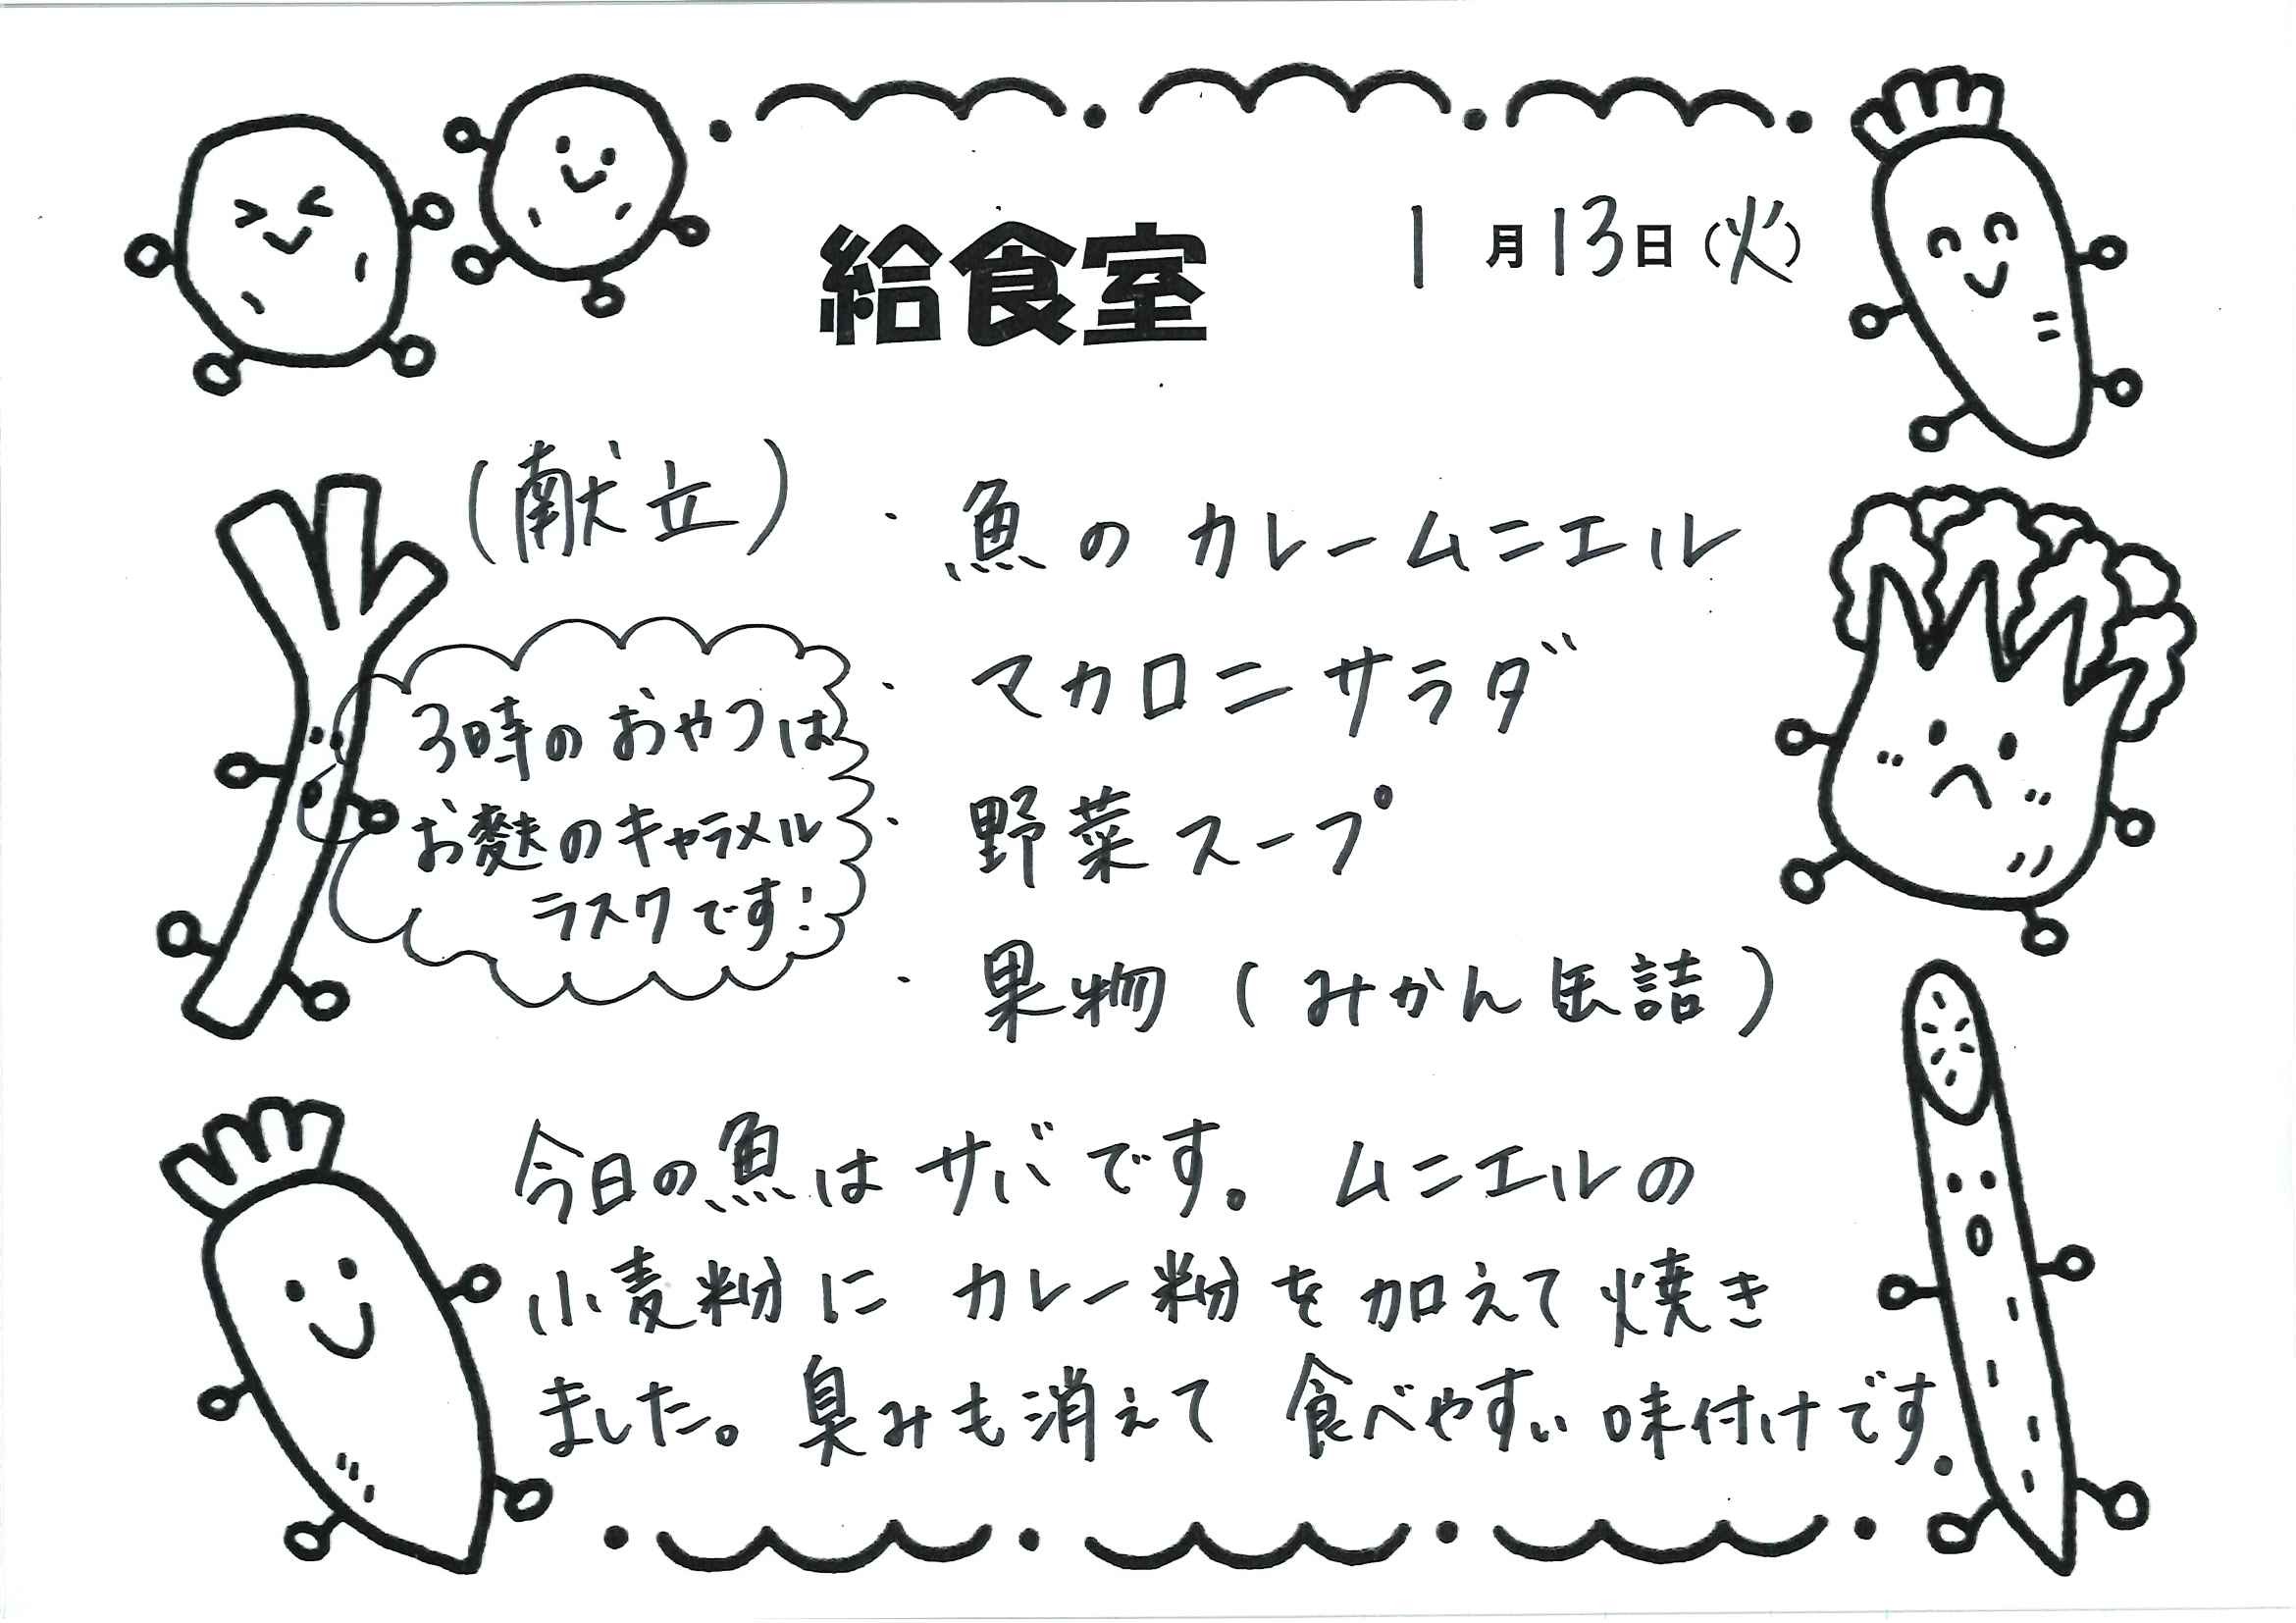 給食室
1月13日(火)
(献立)
・魚のカレームニエル
・マカロニサラダ
・野菜スープ
・果物(みかん缶詰)
3時のおやつは
お麩のキャラメル
ラスクです!
今日の魚はサバです。ムニエルの
小麦粉にカレー粉を加えて焼き
ました。臭みも消えて食べやすい味付けです.